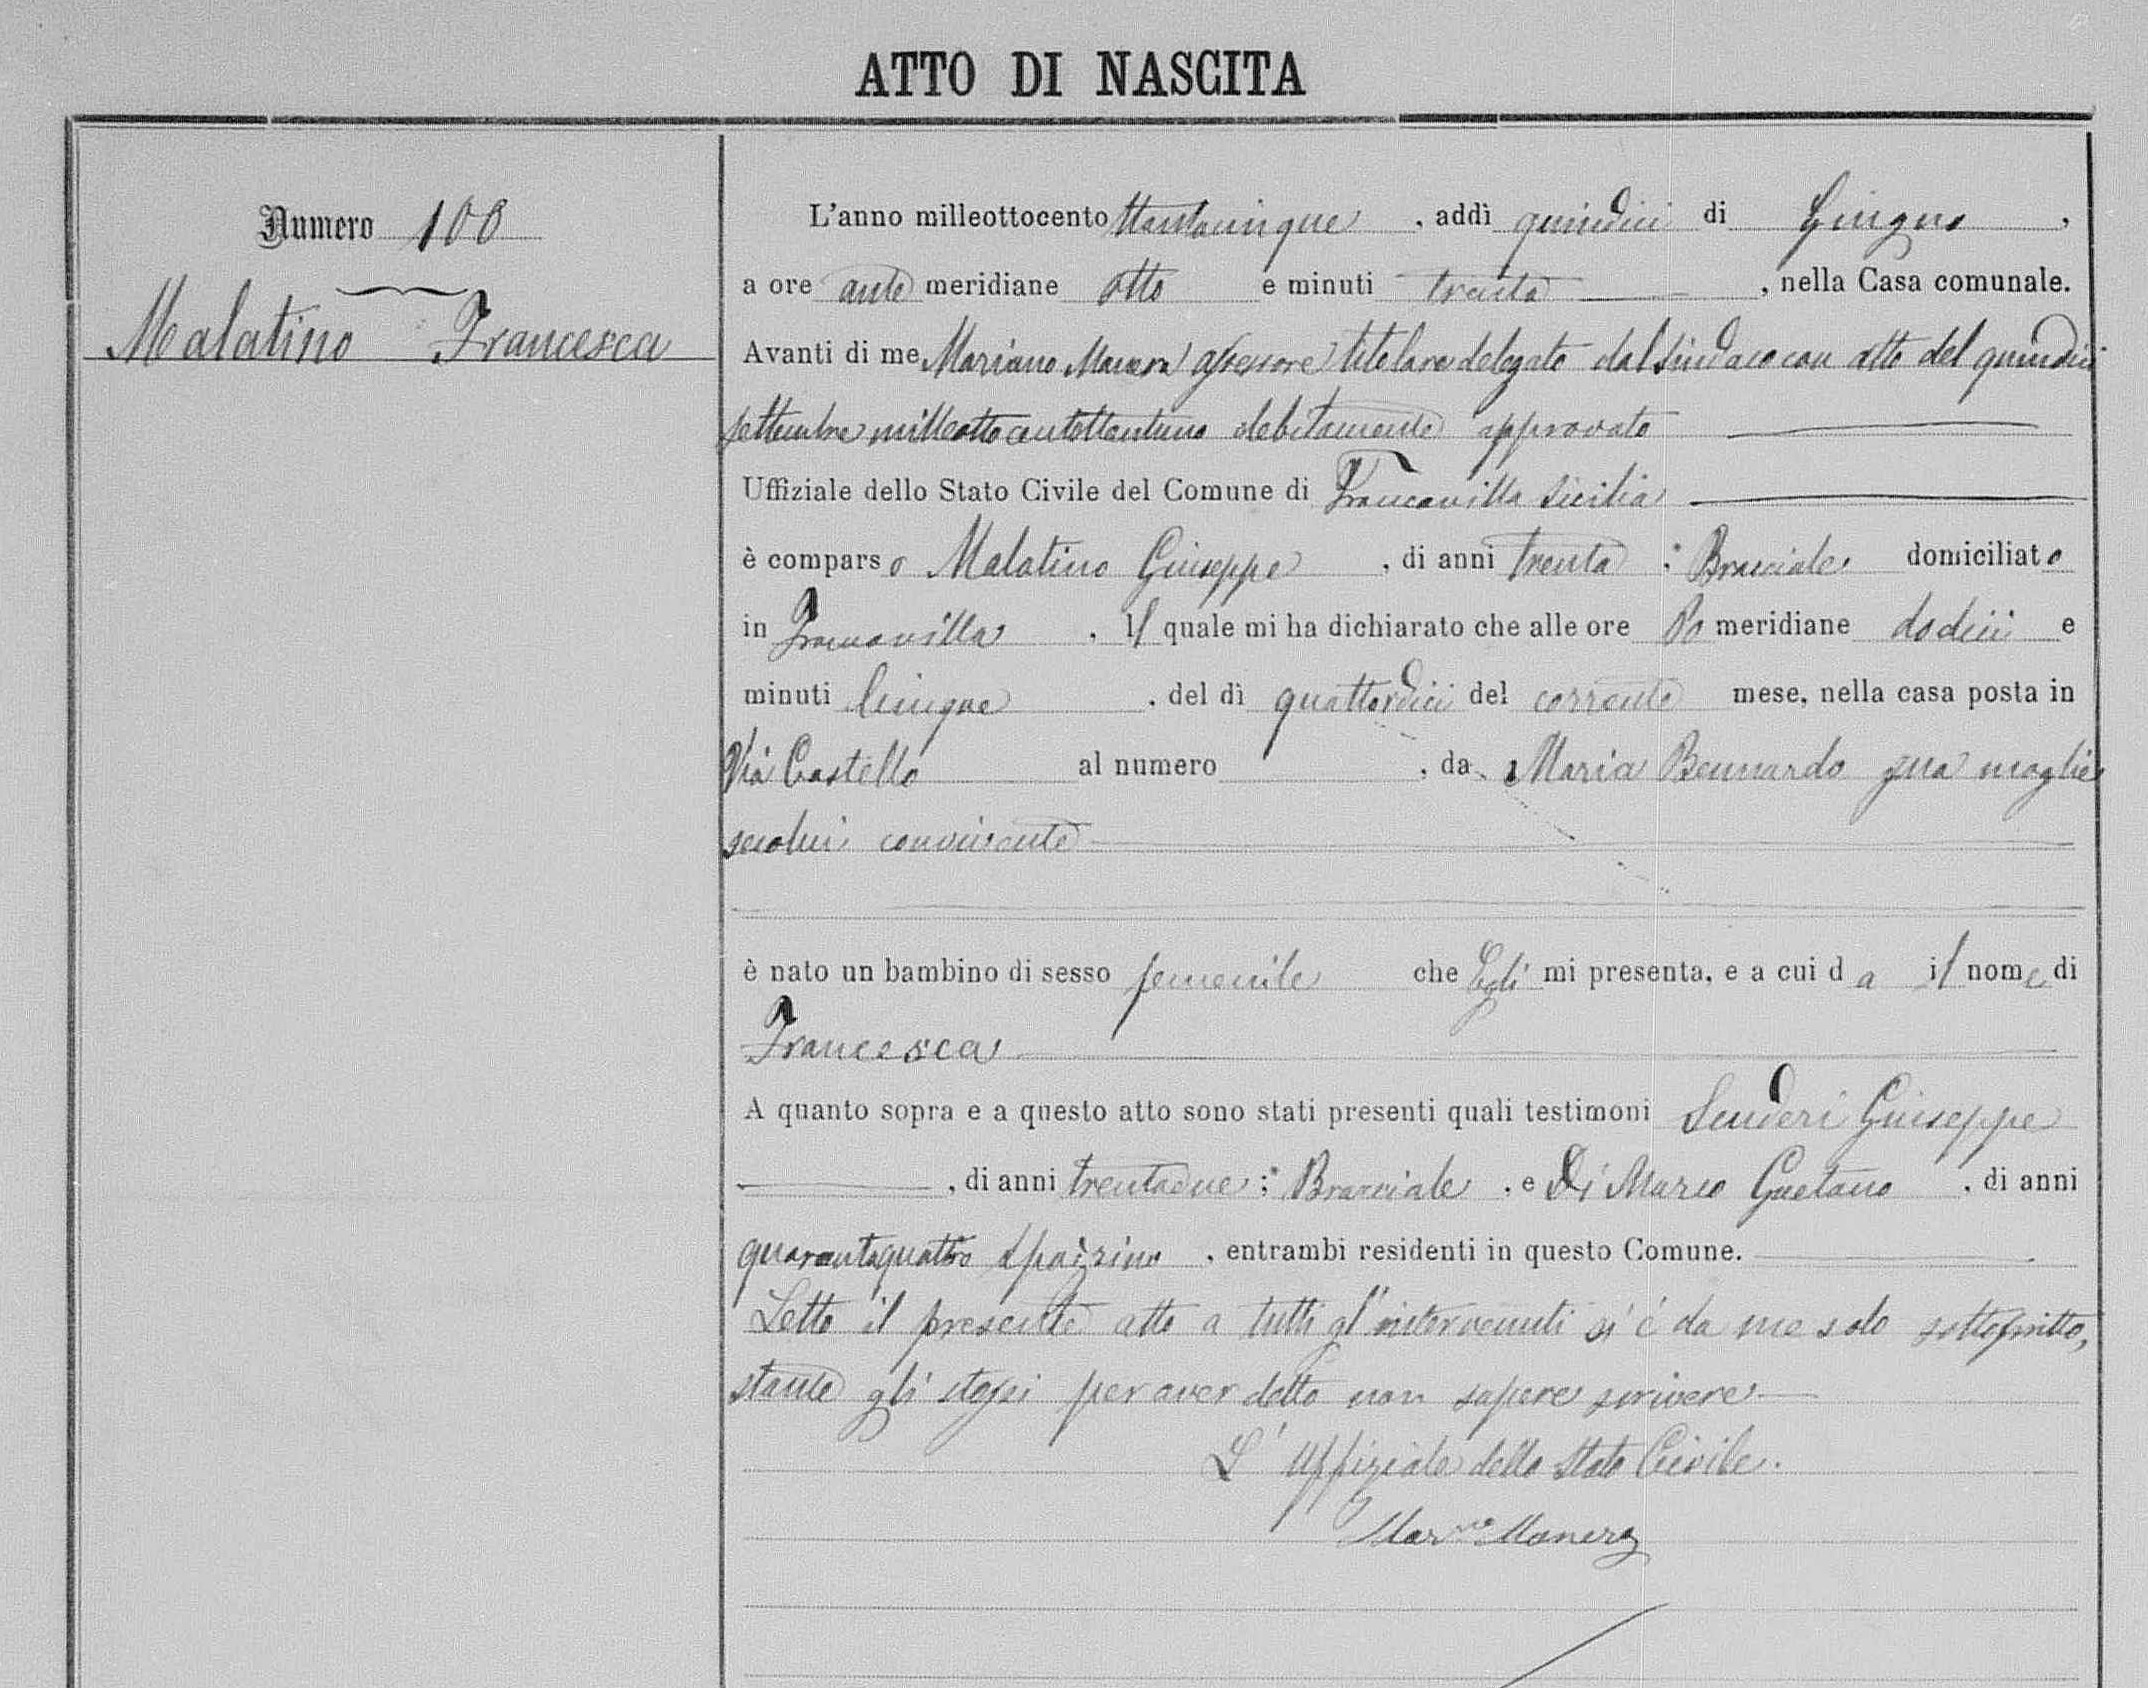 ATTO DI NASCITA
Numero 100
Malatino Francesca
L'anno milleottocento ttantacinque, addì quindici di Giugno,
a ore ante meridiane otto e minuti trenta, nella Casa comunale.
Avanti di me Mariano Manera assessore titolare delegato dal Sindaco con atto del quindici
settembre milleottocentottantuno debitamente approvato
Uffiziale dello Stato Civile del Comune di Francavilla Sicilia
è comparso Malatino Giuseppe, di anni trenta; Bracciale domiciliato
in Francavilla, il quale mi ha dichiarato che alle ore Po meridiane dodici e
minuti Cinque, del dì quattordici del corrente mese, nella casa posta in
Via Castello al numero , da Maria Bennardo sua moglie
secolui convivente
è nato un bambino di sesso femenile che Egli mi presenta, e a cui da il nome di
Francesca
A quanto sopra e a questo atto sono stati presenti quali testimoni Scuderi Giuseppe
, di anni trentadue; Bracciale, e Di Marco Gaetano, di anni
quarantaquattro, entrambi residenti in questo Comune.
Letto il presente atto a tutti gl'intervenuti si è da me solo sottoscritto,
stante gli stessi per aver detto non sapere scrivere
L'Uffiziale dello Stato Civile.
Mar.no Manera